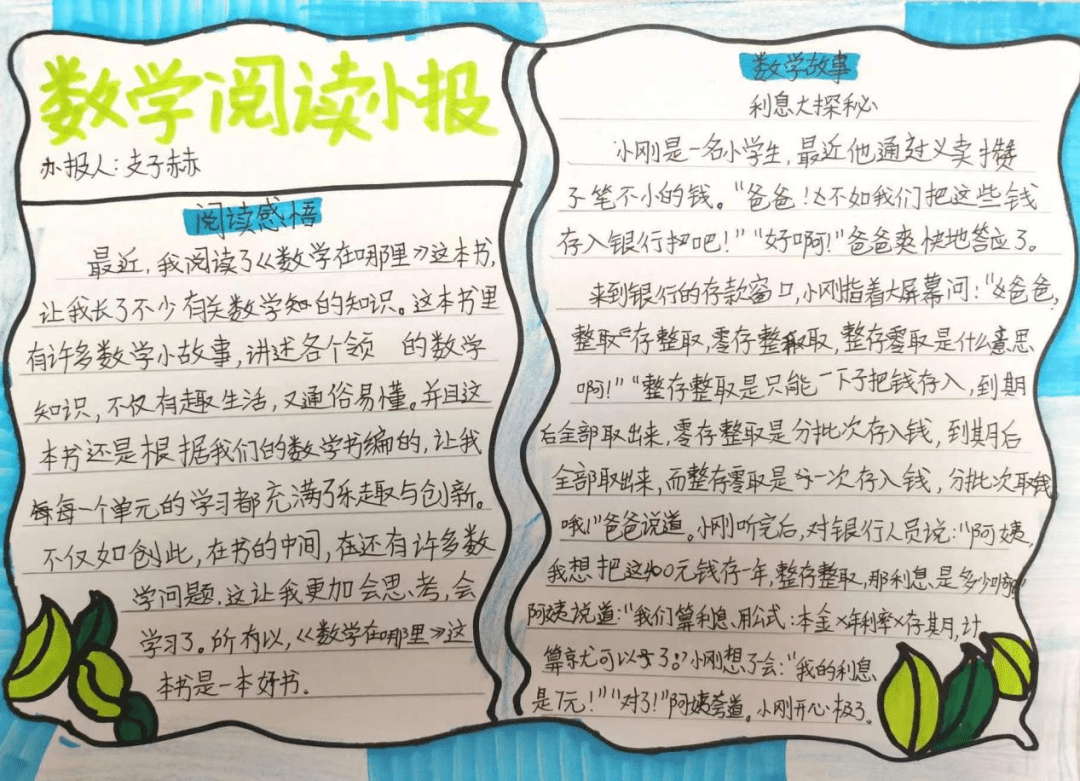 数学阅读小报
办报人:支子赫
阅读感悟
最近,我阅读了《数学在哪里》这本书,
让我长了不少有关数学知的知识。这本书里
有许多数学小故事,讲述各个领 的数学
知识,不仅有趣生活,又通俗易懂。并且这
本书还是根据我们的数学书编的,让我
每每一个单元的学习都充满了乐趣与创新。
不仅如创此,在书的中间,在还有许多数
学问题,这让我更加会思考,会
学习了。所有以,《数学在哪里》这
本书是一本好书.
数学故事
利息大探秘
小刚是一名小学生,最近他通过义卖攒
了笔不小的钱。“爸爸!不如我们把这些钱
存入银行吧!”“好啊!”爸爸爽快地答应了。
来到银行的存款窗口,小刚指着大屏幕问:“爸爸,
整取存整取,零存整取,整存零取是什么意思
啊!”“整存整取是只能一下子把钱存入,到期
后全部取出来,零存整取是分批次存入钱,到期后
全部取出来,而整存零取是一次存入钱,分批次取钱
哦!”爸爸说道。小刚听完后,对银行人员说:“阿姨,
我想把这400元钱存一年,整存整取,那利息是多少
阿姨说道:“我们算利息用公式:本金×年利率×存期,计
算就可以了。”小刚想了会:“我的利息
是7元!”“对了!”阿姨夸道。小刚开心极了。